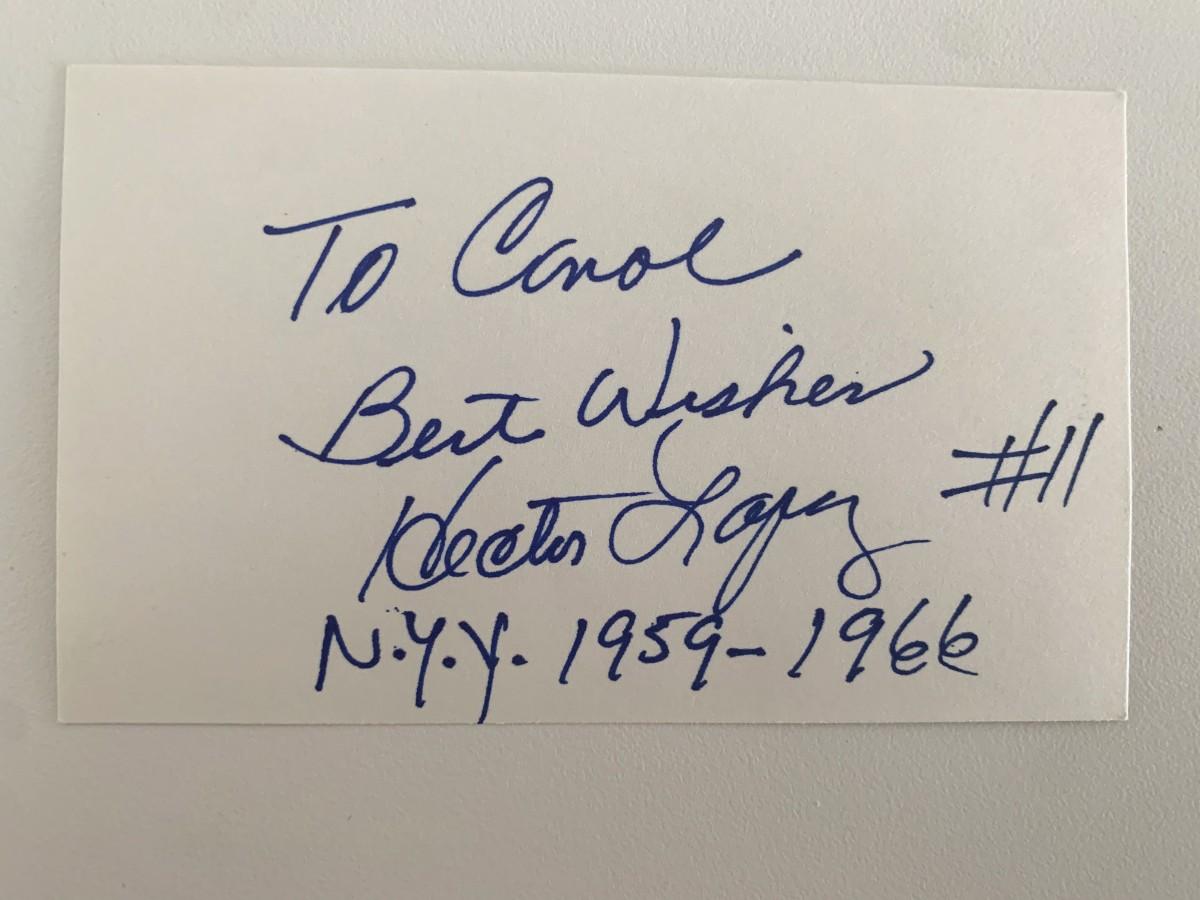 To Carol
Best Wishes
Hector Lopez #11
N.Y.Y. 1959-1966